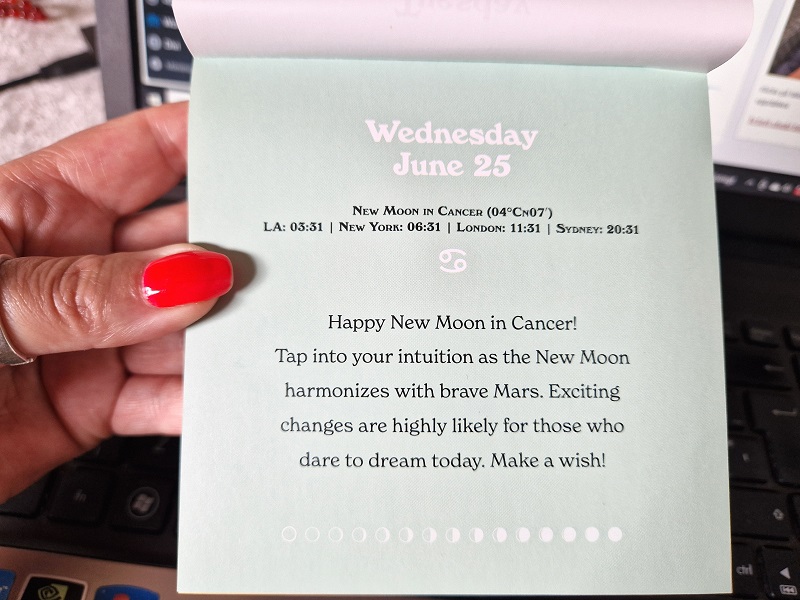 Tuesday
Wednesday
June 25
New Moon in Cancer (04°Cn07')
LA: 03:31 | New York: 06:31 | London: 11:31 | Sydney: 20:31
♋
Happy New Moon in Cancer!
Tap into your intuition as the New Moon
harmonizes with brave Mars. Exciting
changes are highly likely for those who
dare to dream today. Make a wish!
fn
ctrl